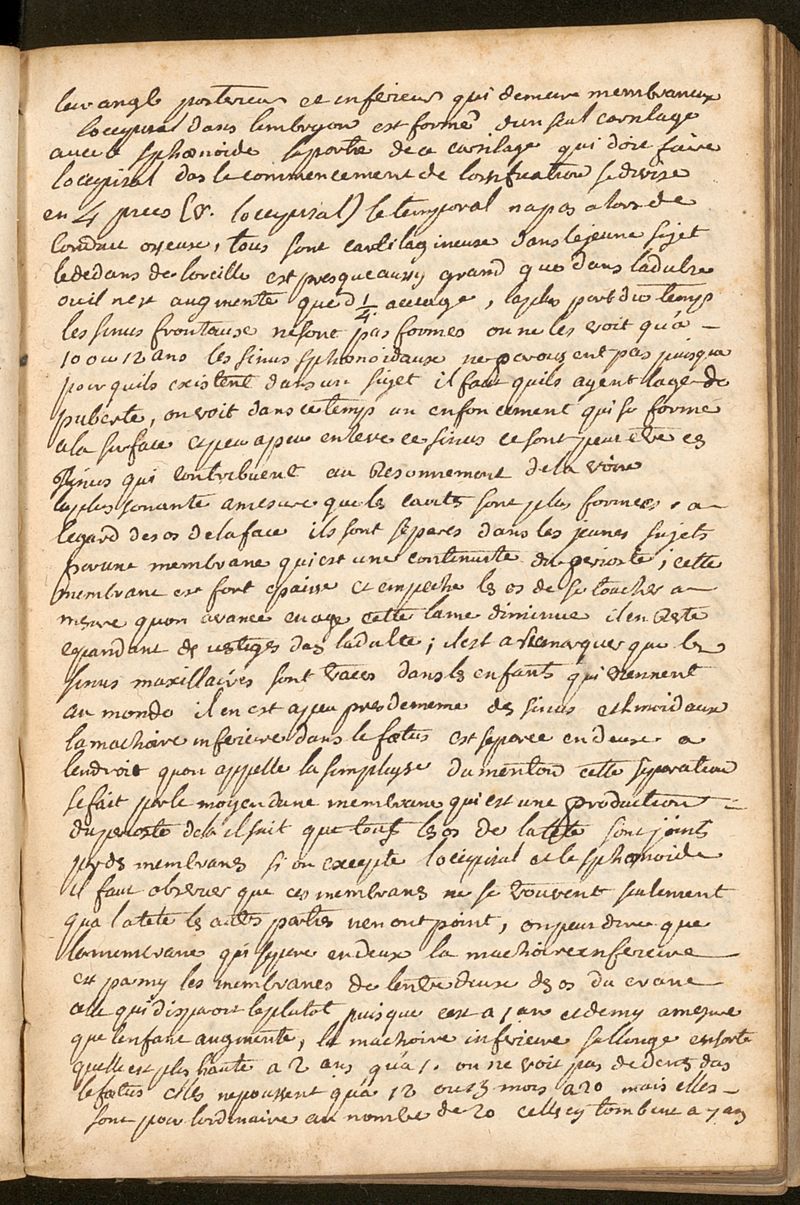 leur angle posterieur et inferieur qui demeure membraneux
loccipital dans lembryon est formé dun seul cartilage
avec sphœnoide la portie de ce cartilage qui doit faire
loccipital das le commencement de lossification se divise
en 4 pieces (v. loccipital) le temporal na pas alors de
conduit osseux, tous sont cartilagineuse dans le jeune sujet
le dedans de loreille est presque aussy grand que dans ladulte
ou il nest augmenté que d 1/4. , la plus part du temps
les sinus frontause ne sont pas formés on ne les voit qu'a
10 ou 12 ans les sinus sphœnoidaux ne paroissent pas puisque
pour quils existent dans un sujet il faut quils ayent lage de
puberté, on voit dans ce temps un enfoncement qui se forme
a la surface et peu a peu enleve ce sinus ce sont peut etre ces
sinus qui contribuent au resonnement de la voix
la plus sonante a mesure que les cavités sont plus formées. a
legard des os de la face ils sont séparés dans les jeunes sujets
par une membrane qui est une continuité du perioste; cette
membrane est fort epaisse et empeche les os de se toucher a
mesure quon avance en age cette lame diminue il en reste
cependant de vestiges das ladulte; il est a remarquer que les
sinus maxillaires sont tracés dans les enfants qui viennent
au monde il en est a peu pres de meme des sinus ethmoidaux
la machoire inferieure dans le fœtus est separée en deux. a
lendroit quon appelle la simphyse du menton cette separation
se fait par le moyen dune membrane qui est une production
du perioste de la il suit que tous les os de la tete sont joints
par des membranes si on excepte loccipital et le sphœnoide
il faut observer que ces membranes ne se trouvent seulement
qua la tete les autres parties nen ont point, on peut dire que
la membrane qui separe en deux la machoire inferieure
est parmy les membranes de lentre deux des os du crane
celle qui disparoit le plutot puisque cest a 1 an et demy a mesure
que lenfant augmente, la machoire inferieure sallonge en sorte
quelle est plus haute a 2 ans qu'a 1. on ne voit pas de dents das
le fœtus elles ne poussent qu'a 12 ou 13 mois a 20 mais elles
sont pour lordinaire au nombre de 20 celles cy tombent a 7 ans